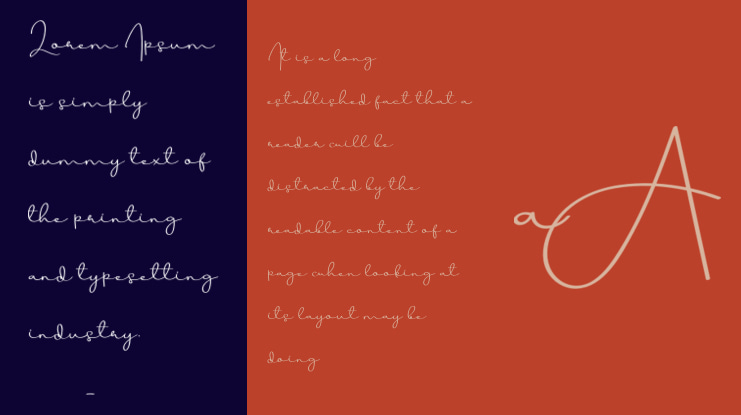 Lorem Ipsum
is simply
dummy text of
the printing
and typesetting
industry.
–
It is a long
established fact that a
reader will be
distracted by the
readable content of a
page when looking at
its layout may be
doing
a A